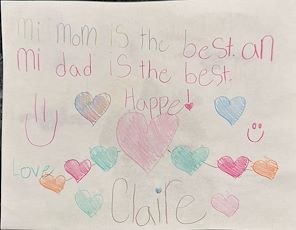 mi mom is the best. an
mi dad is the best.
Happe!
Love
Claire